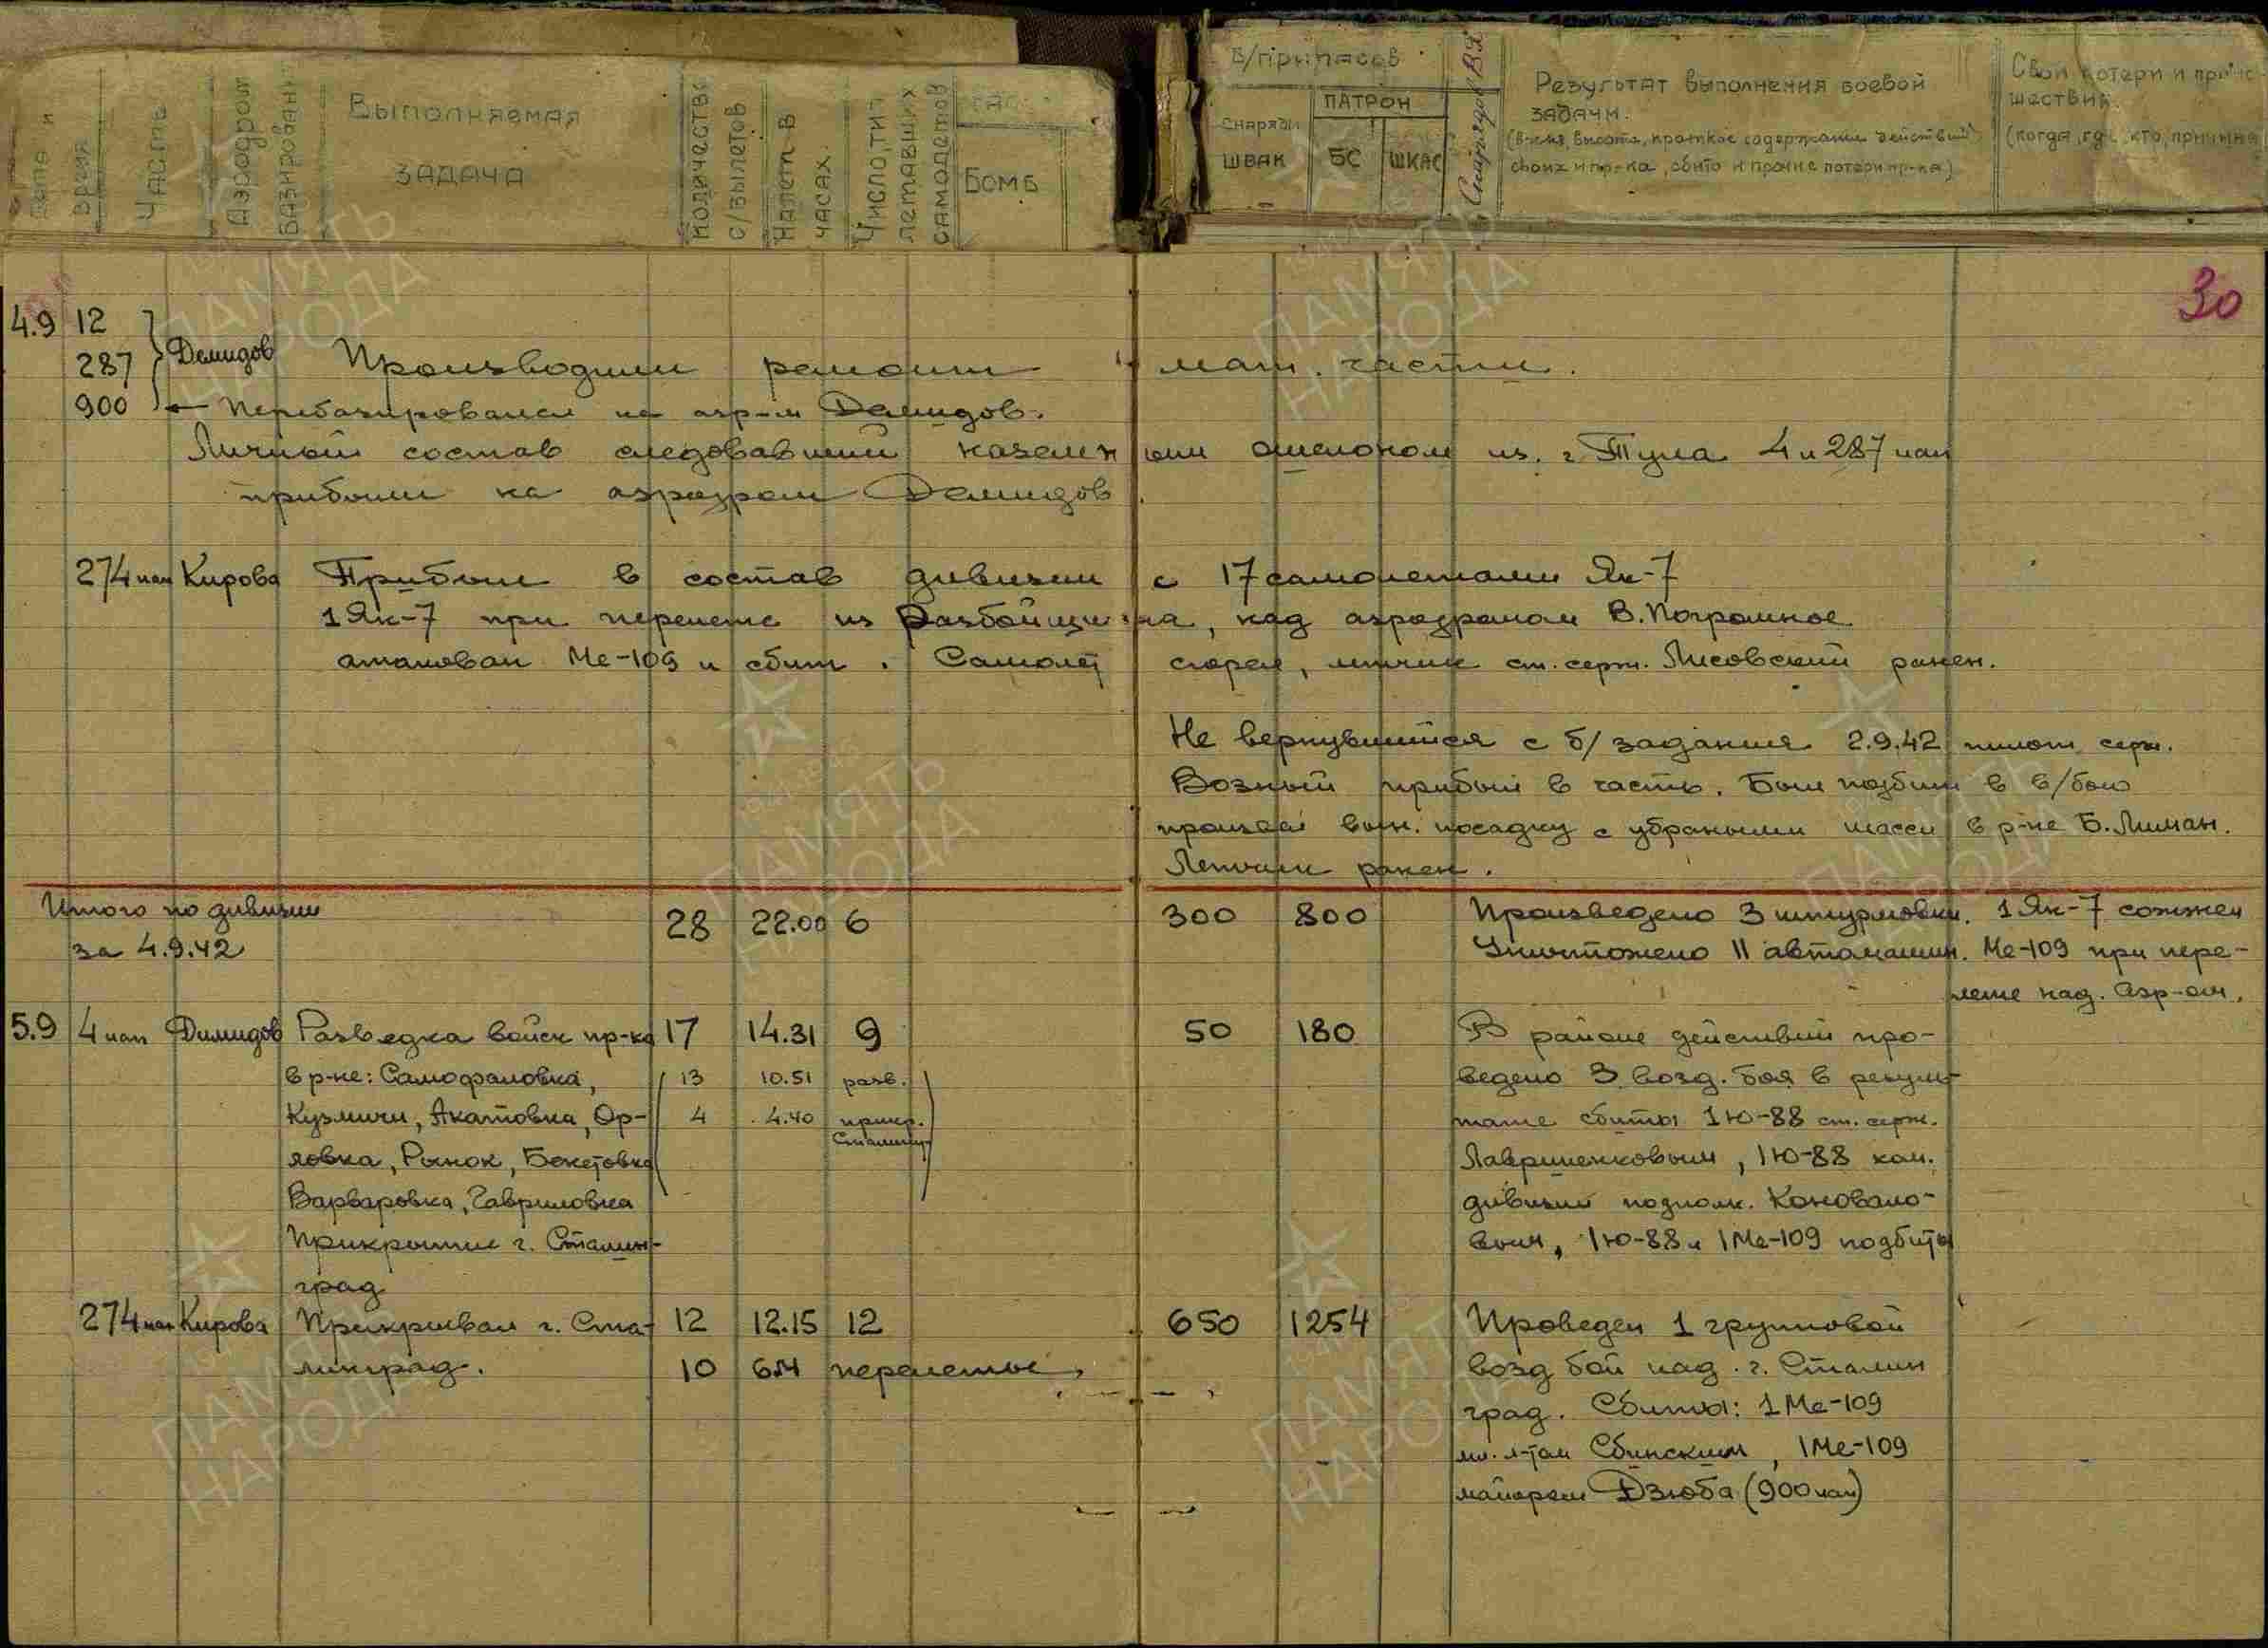 Дата и время
Часть
Аэродром базирования
Выполняемая задача
Количество с/вылетов
Налет в часах.
Число, тип летавших самолетов
Бомб
Б/припасов
снаряды ШВАК
ПАТРОН
БС
ШКАС
Снарядов ВЯ
Результат выполнения боевой
задачи.
(Время, высота, краткое содержание действий
своих и пр-ка, сбито и прочие потери пр-ка)
Свои потери и проис-
шествия.
(когда, где, кто, причина)
30
4.9 12
287 Демидов Производили ремонт мат. части.
900 ← Перебазировался на аэр-м Демидов.
Личный состав следовавший наземным эшелоном из г. Тула 4 и 287 иап
прибыли на аэродром Демидов.
274 иап Кирова Прибыл в состав дивизии с 17 самолетами Як-7
1 Як-7 при перелете из Разбойщина, над аэродромом В. Погромное
атакован Ме-109 и сбит. Самолет сгорел, летчик ст. серж. Лисовский ранен.
Не вернувшийся с б/задания 2.9.42 пилот серж.
Возный прибыл в часть. Был подбит в в/бою
произвел вын. посадку с убраными шасси в р-не Б. Лиман.
Летчик ранен.
Итого по дивизии 28 22.00 6 300 800 Произведено 3 штурмовки. 1 Як-7 сожжен
за 4.9.42 Уничтожено 11 автомашин. Ме-109 при пере-
лете над. аэр-ом.
5.9 4 иап Демидов Разведка войск пр-ка 17 14.31 9 50 180 В районе действий про-
в р-не: Самофаловка, 13 10.51 разв. ведено 3 возд. боя в резуль-
Кузмичи, Акатовка, Ор- 4 4.40 прикр. Сталингр. тате сбиты 1 Ю-88 ст. серж.
ловка, Рынок, Бекетовка Лавриненковым, 1 Ю-88 ком.
Варваровка, Гавриловка дивизии подполк. Коновало-
Прикрытие г. Сталин- вым, 1 Ю-88 и 1 Ме-109 подбиты
град
274 иап Кирова Прикрывал г. Ста- 12 12.15 12 650 1254 Проведен 1 групповой
линград. 10 перелеты, возд бой над. г. Сталин
град. Сбиты: 1 Ме-109
мл. л-том Сбинским, 1 Ме-109
майором Дзюба (900 иап)
ПАМЯТЬ
НАРОДА